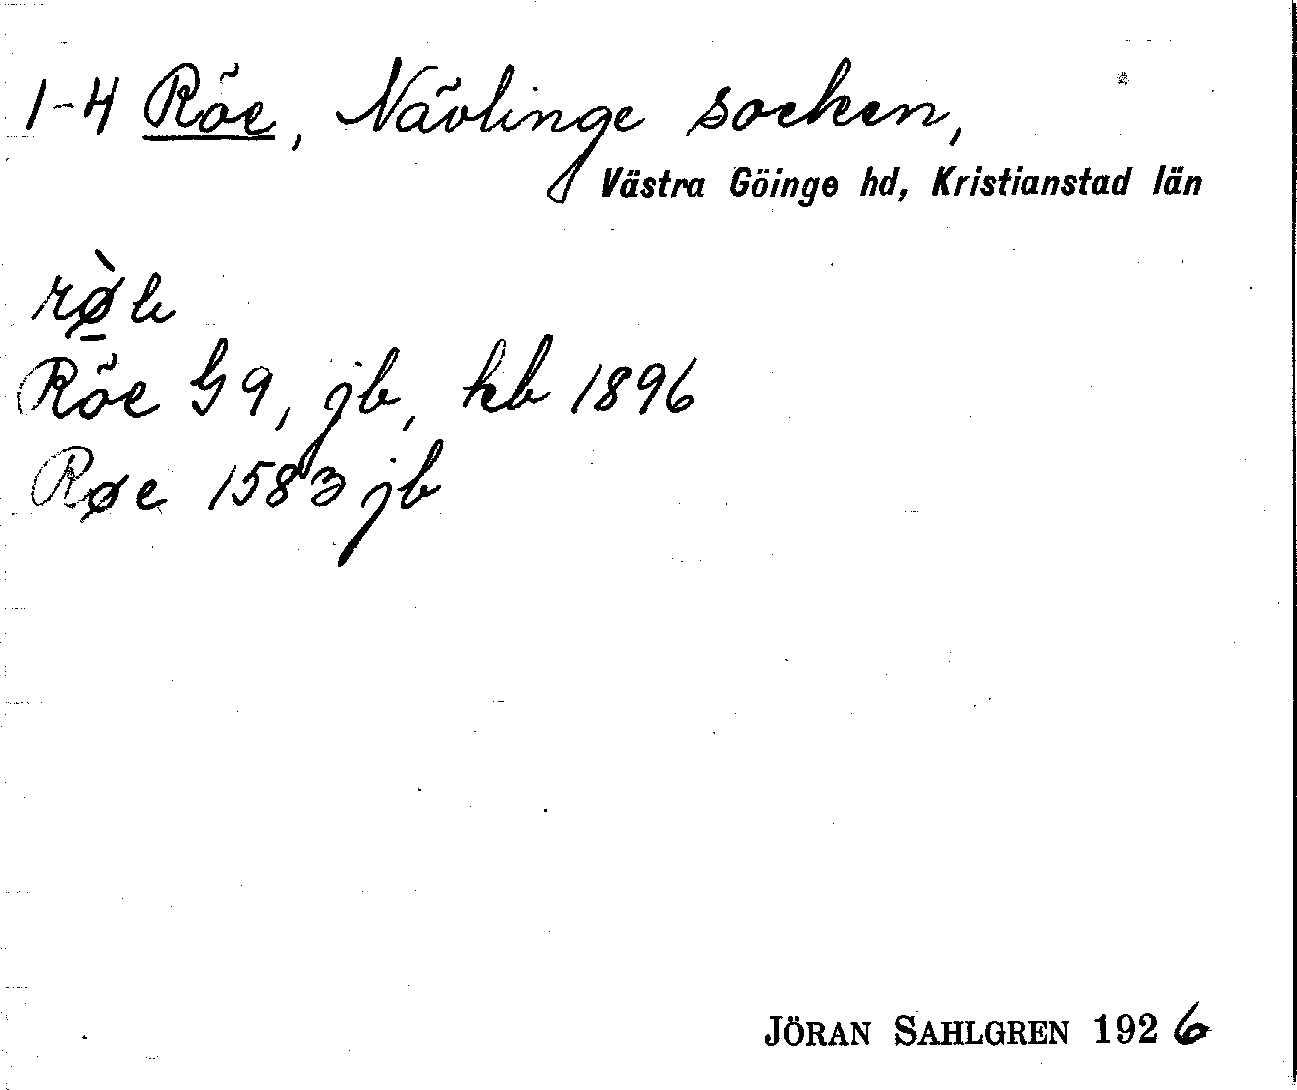 1-4 Röe, Nävlinge socken,
Västra Göinge hd, Kristianstad län
Röe G 9, jb, kb 1896
Røe 1583 jb
JÖRAN SAHLGREN 1926